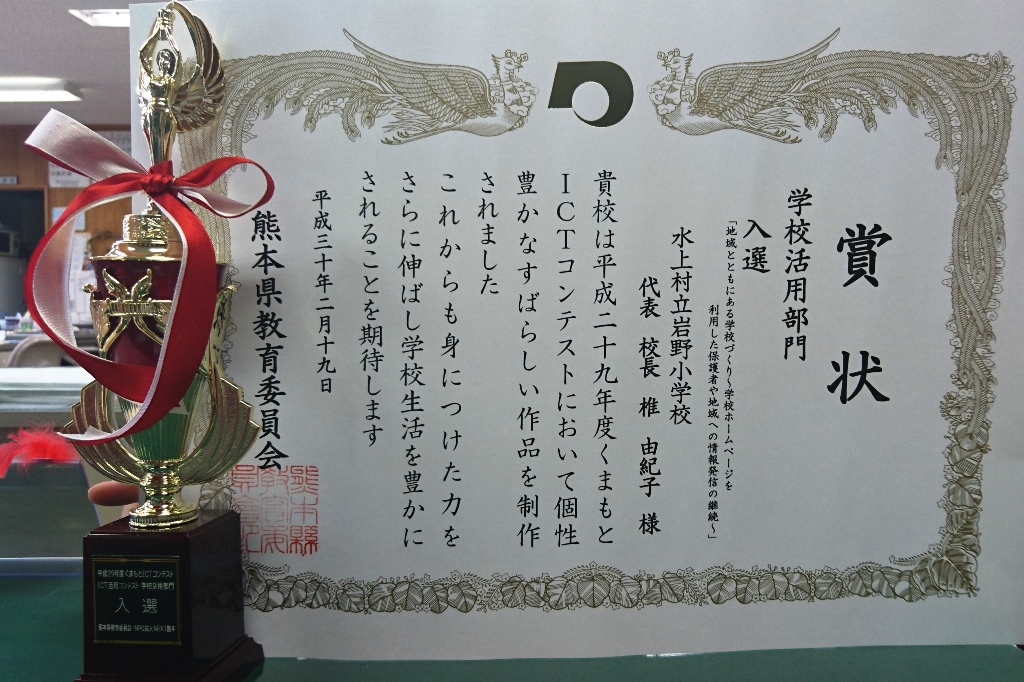 賞状
学校活用部門
入選
「地域とともにある学校づくり～学校ホームページを
利用した保護者や地域への情報発信の継続～」
水上村立岩野小学校
代表 校長 椎 由紀子 様
貴校は平成二十九年度くまもと
ICTコンテストにおいて個性
豊かなすばらしい作品を制作
されました
これからも身につけた力を
さらに伸ばし学校生活を豊かに
されることを期待します
平成三十年二月十九日
熊本県教育委員会
平成29年度くまもとICTコンテスト
ICT活用コンテスト 学校活用部門
入選
熊本県教育委員会・NPO法人NEXT熊本